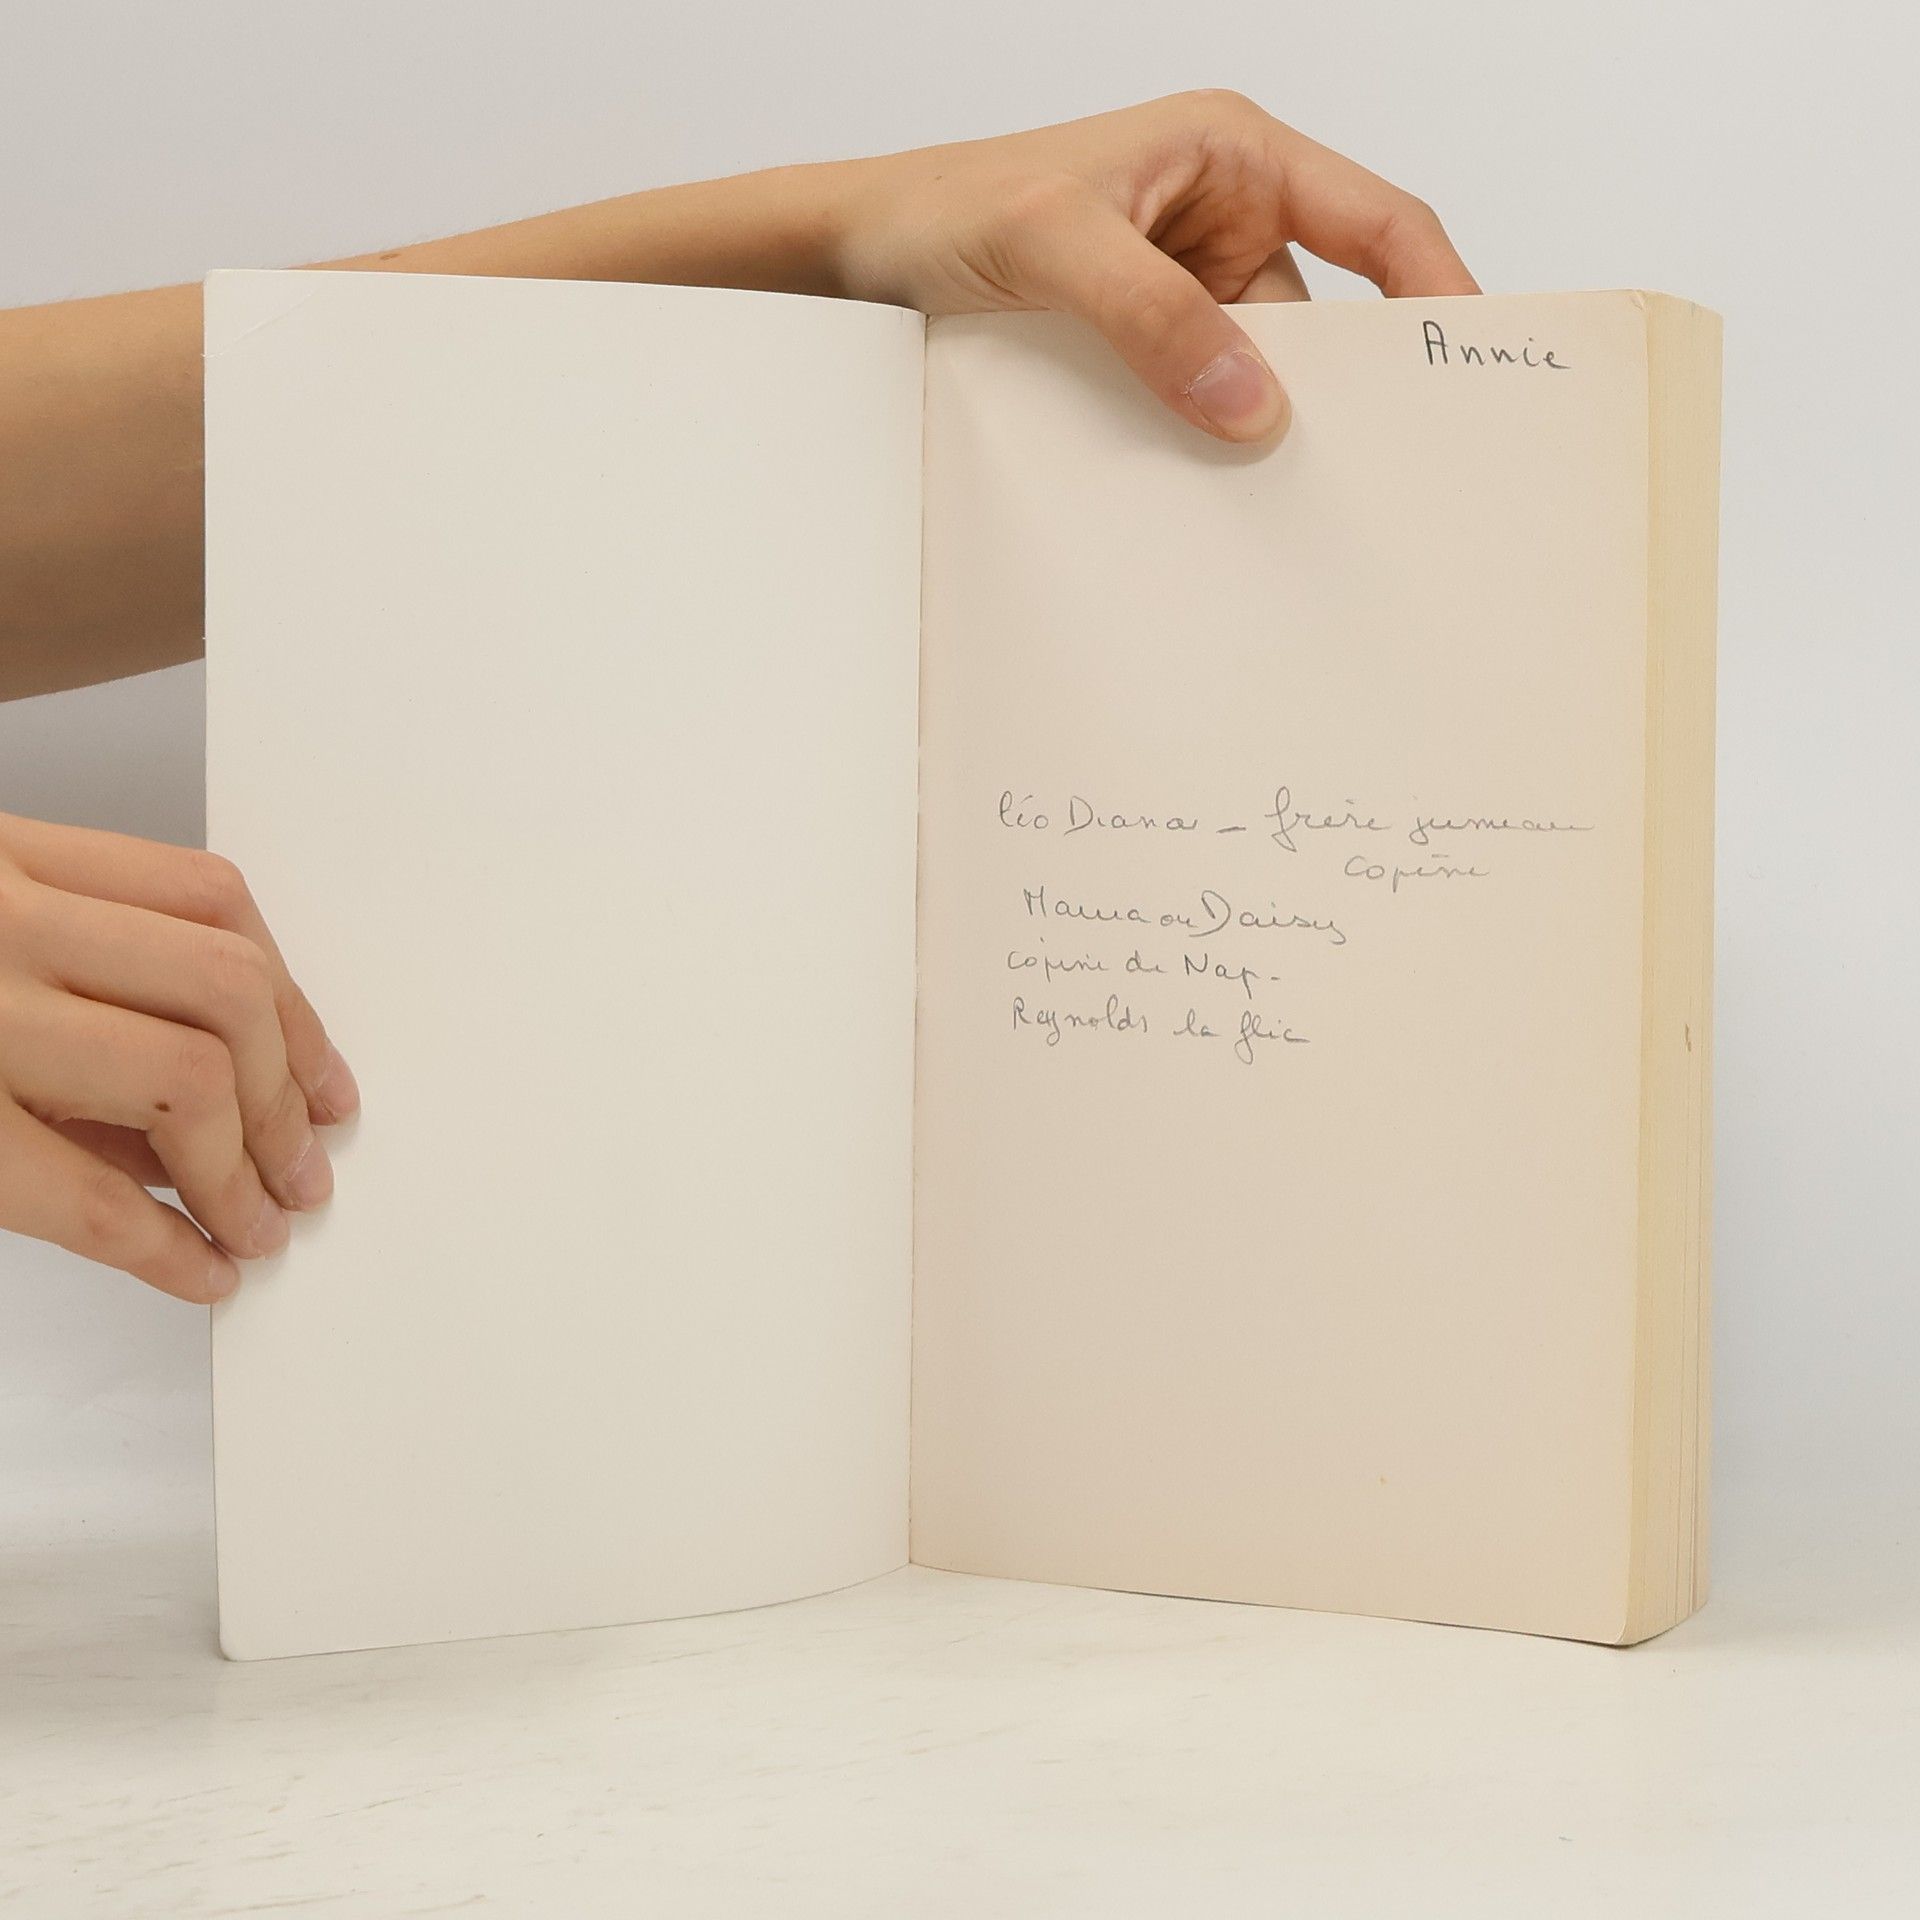 Annie
léo Diana - frère jumeau
copine
Maura ou Daisy
copine de Nap-
Reynolds la flic